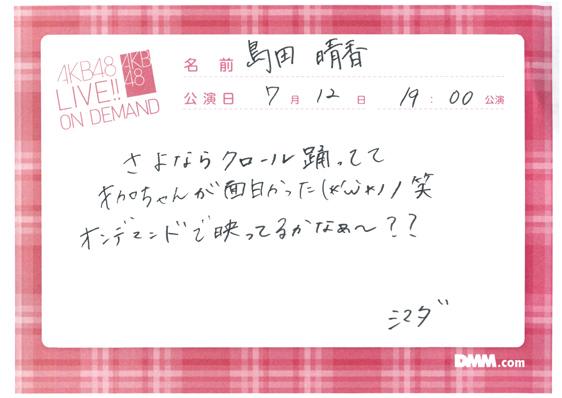 AKB48
LIVE!!
ON DEMAND
AKB
48
名前 島田 晴香
公演日 7月12日 19:00公演
さよならクロール踊ってて
ちゃんが面白かった(*'ω'*)ノ笑
オンデマンドで映ってるかなぁ〜??
シマダ
DMM.com